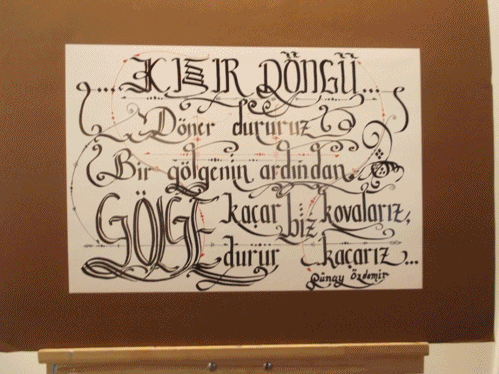 ...KISIR DÖNGÜ...
Döner dururuz
Bir gölgenin ardından
GÖLGE kaçar biz kovalarız,
durur kaçarız...
Güngy Özdemir